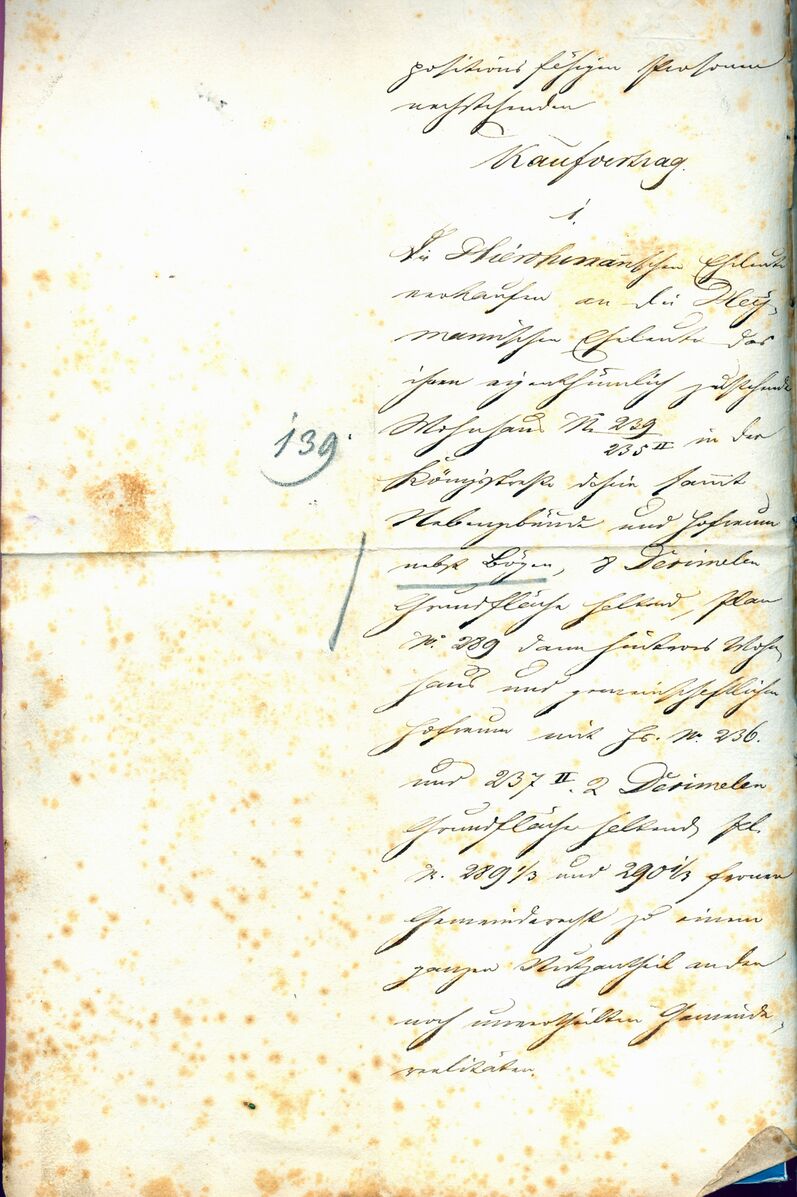 positionsfähigen Personen
nachstehenden
Kaufvertrag.
1.
Die Hierohmann'schen Eheleute
verkaufen an die Hey-
mannischen Eheleute das
ihnen eigenthümlich zustehende
Wohnhaus No 239/235 II in der
Königsstraße dahier sammt
Nebengebäude und Hofraum
nebst Bögen, 8 Dezimalen
Grundfläche haltend, Plan
No. 289 dann hinteres Wohn-
haus und gemeinschaftlichen
Hofraum mit Hs. No. 236.
und 237 II. 2 Dezimalen
Grundfläche haltend, Pl.
N. 289 1/3 und 290 1/3 ferner
Gemeinderecht zu einem
ganzen Nutzantheil an den
noch unvertheilten Gemeinde-
realitäten.
139.